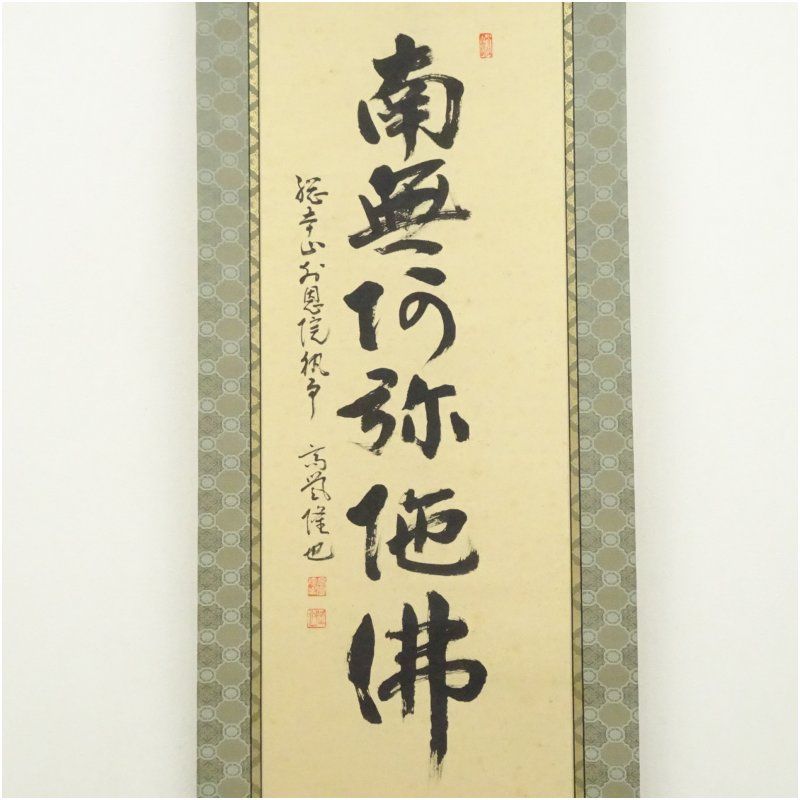 南無阿弥陀佛
総本山知恩院執事 高